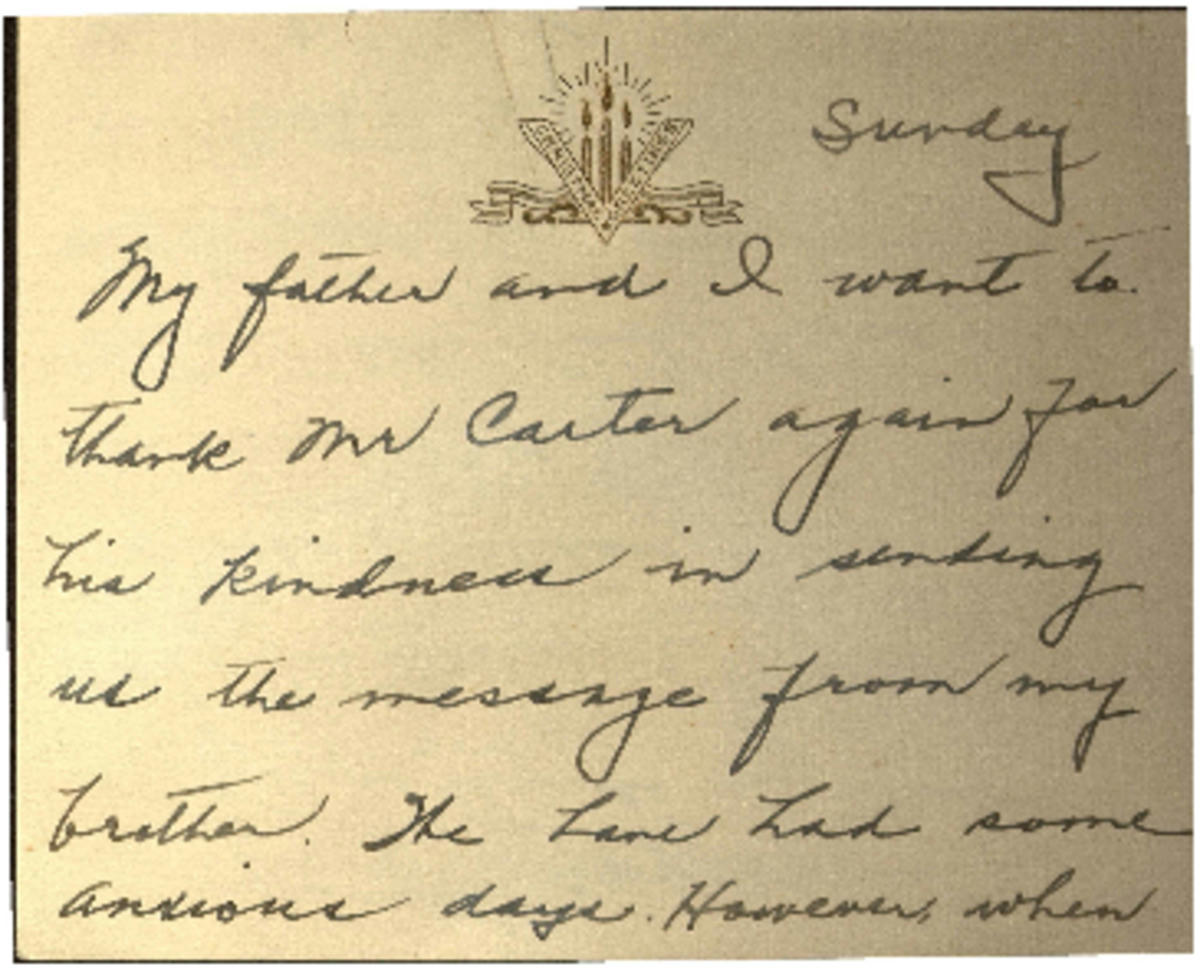 Sunday
My father and I want to.
thank Mr Carter again for
his kindness in sending
us the message from my
brother. The have had some
anxious days. However, when